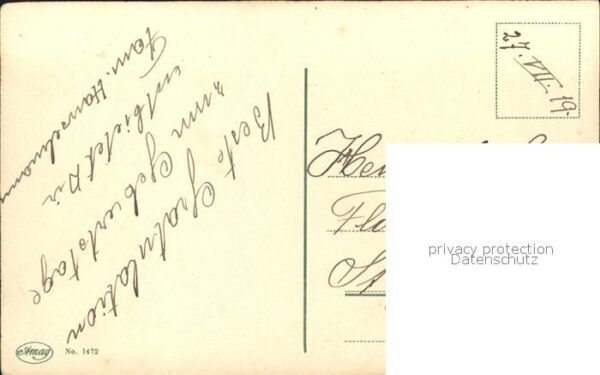 Beste Gratulation
zum Geburtstage
entbietet Dir
Fam. Hanselmann
27. VIII. 19.
privacy protection
Datenschutz
Amag
No. 1472